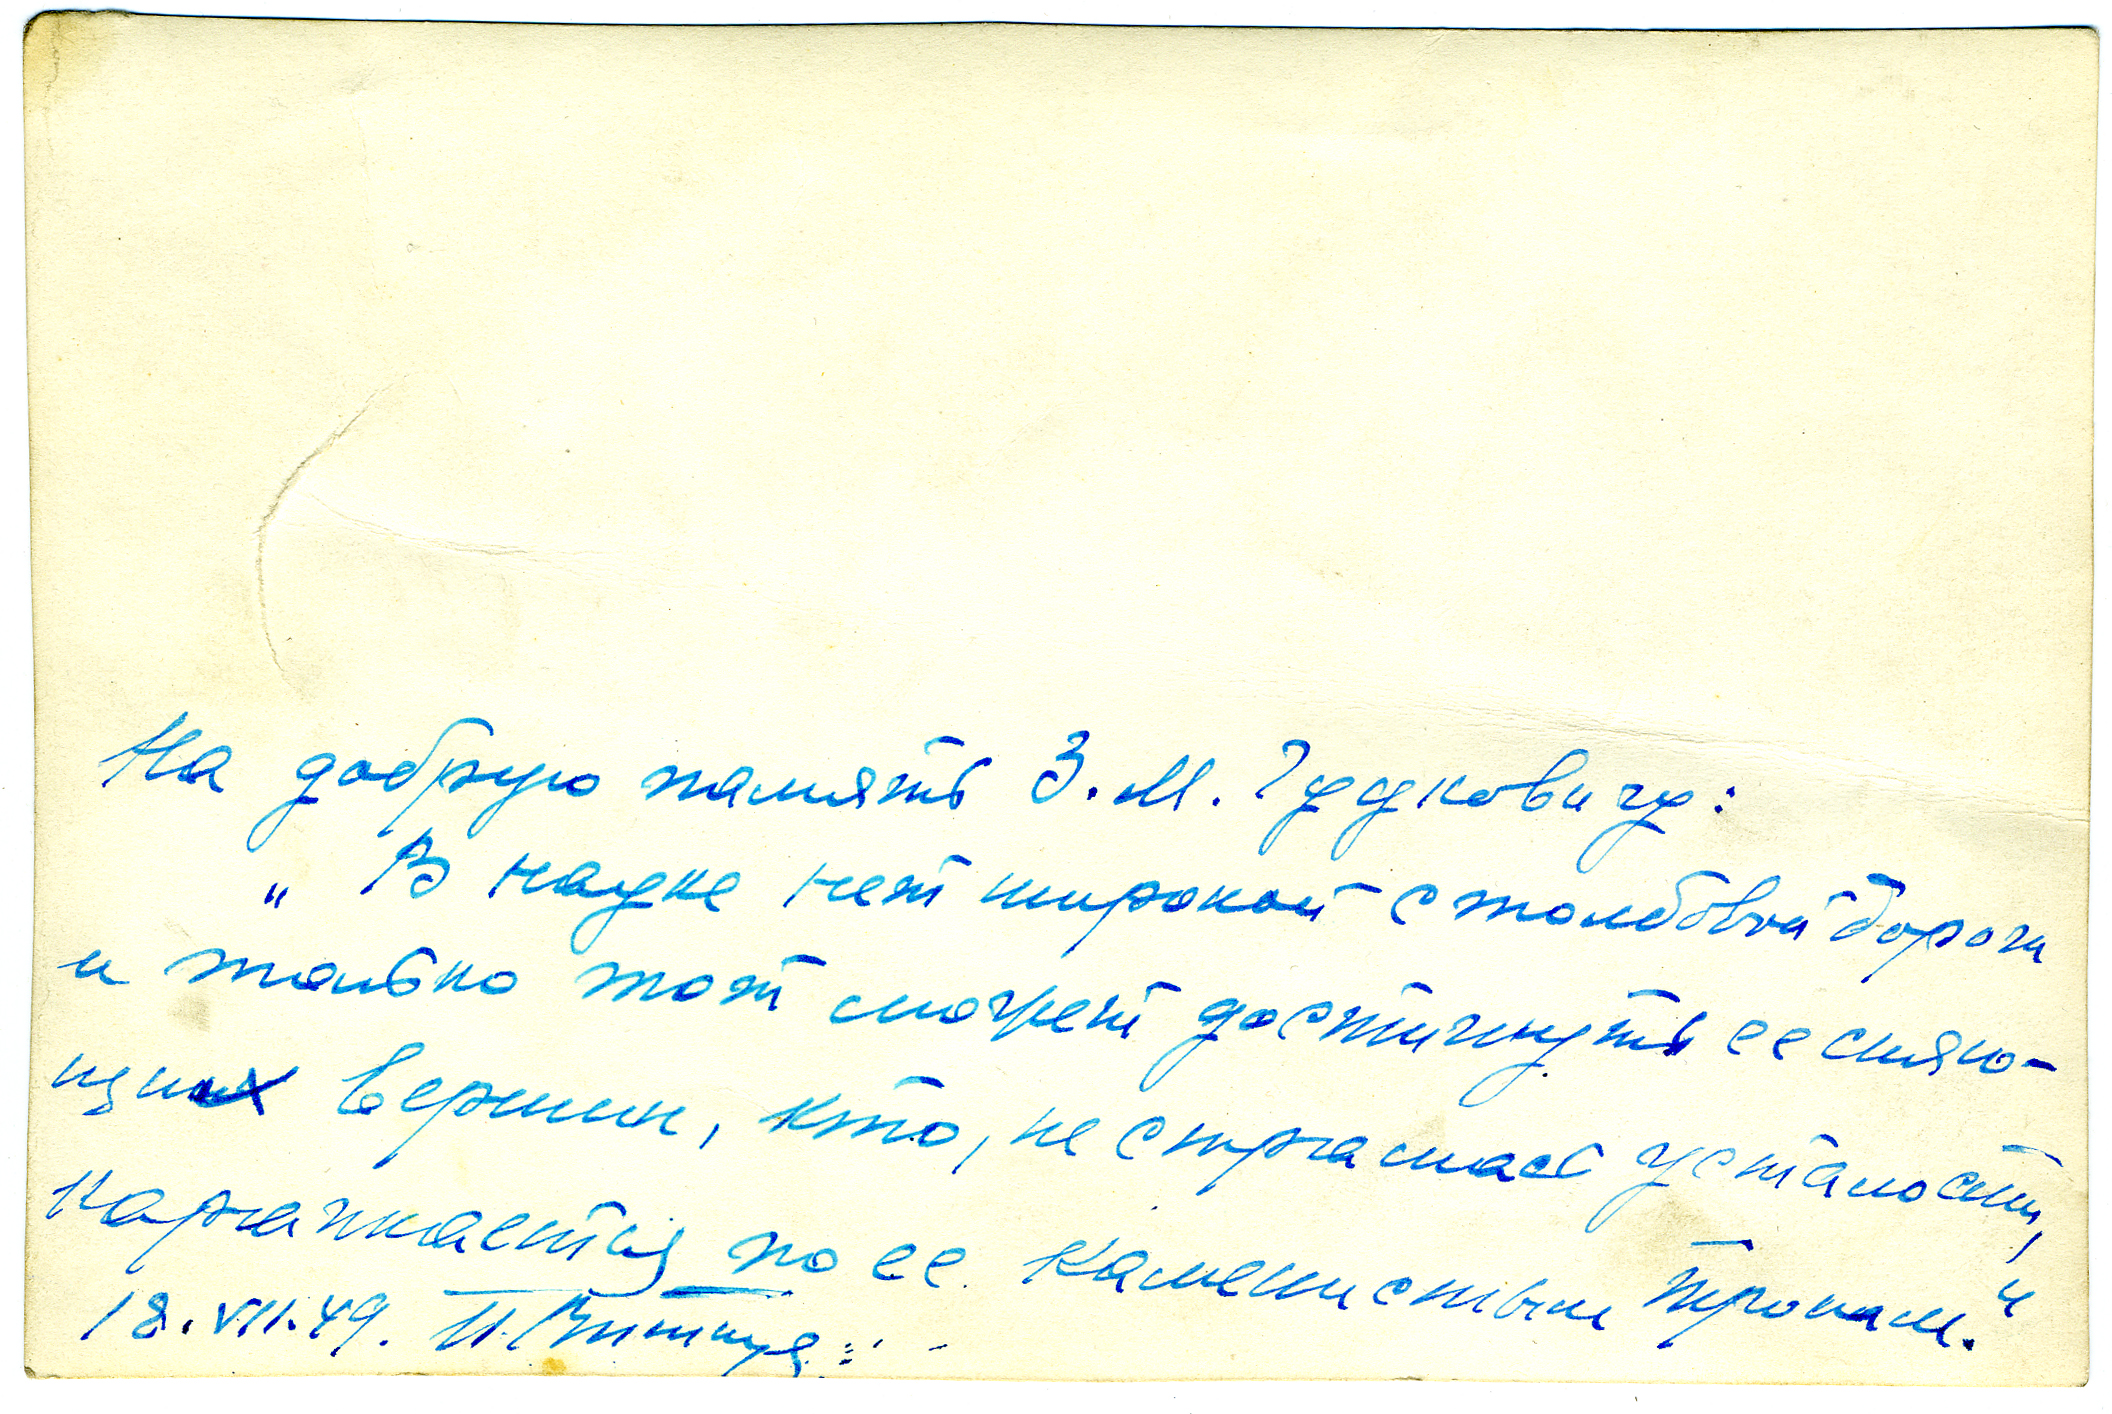 На добрую память З. М. Гудковичу:
„В науке нет широкой столбовой дороги
и только тот может достигнуть ее сияю-
щих вершин, кто, не страшась усталости,
карапкается по ее каменистым тропам.“
18.VII.49. П.